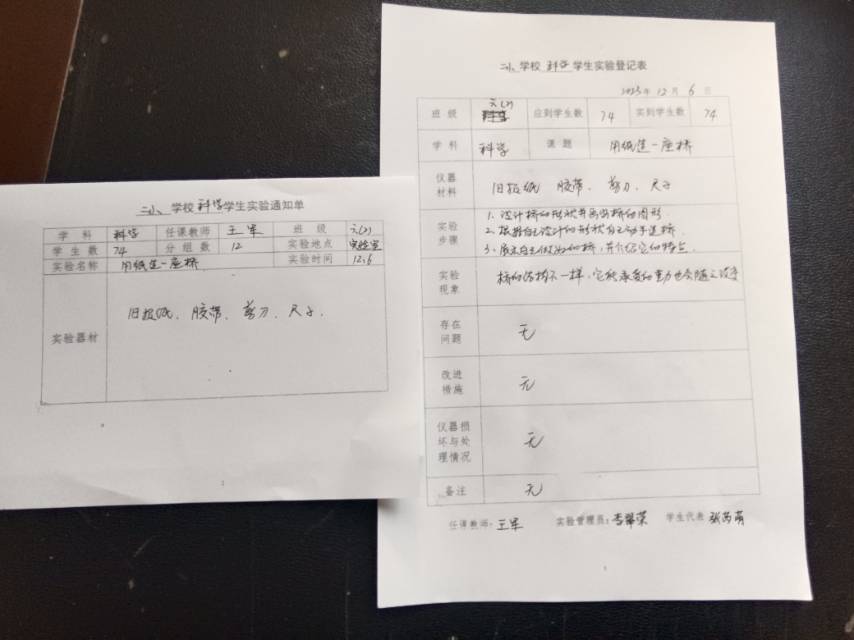 二小 学校 科学 学生实验通知单
学科 科学 任课教师 王军 班级 六(2)
学生数 74 分组数 12 实验地点 实验室
实验名称 用纸造一座桥 实验时间 12.6
实验器材 旧报纸、胶带、剪刀、尺子.
二小 学校 科学 学生实验登记表
2023年12月6日
班级 六(2) 应到学生数 74 实到学生数 74
学科 科学 课题 用纸造一座桥
仪器材料 旧报纸 胶带、剪刀、尺子
实验步骤 1、设计桥的形状并画出桥的图形.
2、根据自己设计的形状自己动手造桥.
3、展示自己做的桥,并介绍它的特点.
实验现象 桥的结构不一样,它能承受的重力也会随之改变
存在问题 无
改进措施 无
仪器损坏与处理情况 无
备注 无
任课教师:王军 实验管理员:李翠荣 学生代表